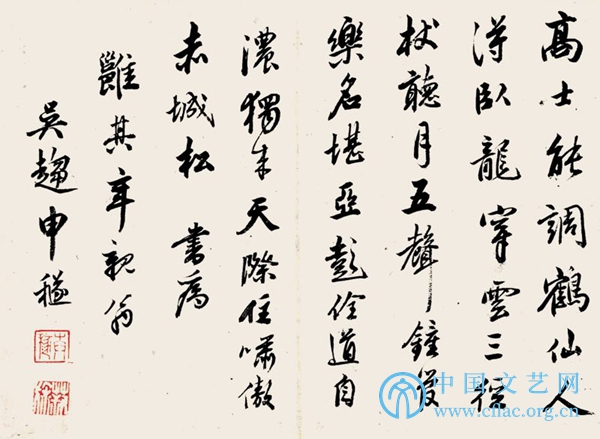 高士能調鶴仙人
得臥龍穿雲三徑
杖聽月五聲鐘後
樂名堪亞彭佺道自
濃獨來天際住嘯傲
赤城松 書為
其年親翁
吳趨申穟
中国文艺网
www.cflac.org.cn